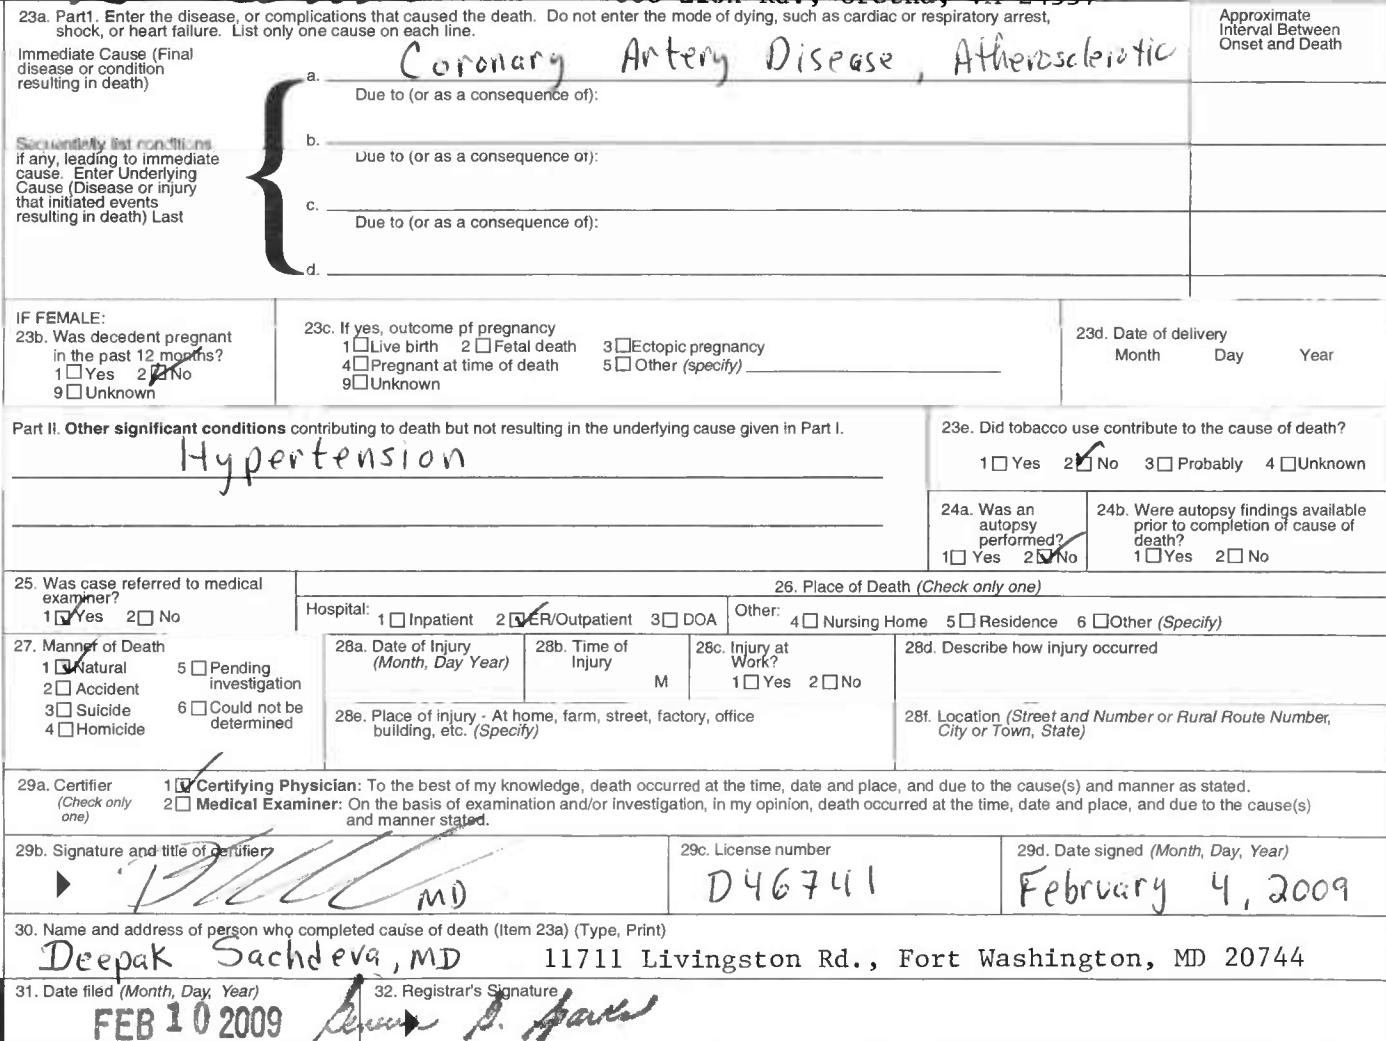 23a. Part1. Enter the disease, or complications that caused the death. Do not enter the mode of dying, such as cardiac or respiratory arrest,
shock, or heart failure. List only one cause on each line.
Approximate
Interval Between
Onset and Death
Immediate Cause (Final
disease or condition
resulting in death)
a. Coronary Artery Disease, Atherosclerotic
Due to (or as a consequence of):
Sequentially list conditions
if any, leading to immediate
cause. Enter Underlying
Cause (Disease or injury
that initiated events
resulting in death) Last
b.
Due to (or as a consequence of):
c.
Due to (or as a consequence of):
d.
IF FEMALE:
23b. Was decedent pregnant
in the past 12 months?
1 Yes 2 No
9 Unknown
23c. If yes, outcome pf pregnancy
1 Live birth 2 Fetal death 3 Ectopic pregnancy
4 Pregnant at time of death 5 Other (specify)
9 Unknown
23d. Date of delivery
Month Day Year
Part II. Other significant conditions contributing to death but not resulting in the underlying cause given in Part I.
Hypertension
23e. Did tobacco use contribute to the cause of death?
1 Yes 2 No 3 Probably 4 Unknown
24a. Was an
autopsy
performed?
1 Yes 2 No
24b. Were autopsy findings available
prior to completion of cause of
death?
1 Yes 2 No
25. Was case referred to medical
examiner?
1 Yes 2 No
26. Place of Death (Check only one)
Hospital: 1 Inpatient 2 ER/Outpatient 3 DOA Other: 4 Nursing Home 5 Residence 6 Other (Specify)
27. Manner of Death
1 Natural 5 Pending
investigation
2 Accident
3 Suicide 6 Could not be
determined
4 Homicide
28a. Date of Injury
(Month, Day Year)
28b. Time of
Injury
M
28c. Injury at
Work?
1 Yes 2 No
28d. Describe how injury occurred
28e. Place of injury - At home, farm, street, factory, office
building, etc. (Specify)
28f. Location (Street and Number or Rural Route Number,
City or Town, State)
29a. Certifier
(Check only
one)
1 Certifying Physician: To the best of my knowledge, death occurred at the time, date and place, and due to the cause(s) and manner as stated.
2 Medical Examiner: On the basis of examination and/or investigation, in my opinion, death occurred at the time, date and place, and due to the cause(s)
and manner stated.
29b. Signature and title of certifier
MD
29c. License number
D46741
29d. Date signed (Month, Day, Year)
February 4, 2009
30. Name and address of person who completed cause of death (Item 23a) (Type, Print)
Deepak Sachdeva, MD 11711 Livingston Rd., Fort Washington, MD 20744
31. Date filed (Month, Day, Year)
FEB 10 2009
32. Registrar's Signature